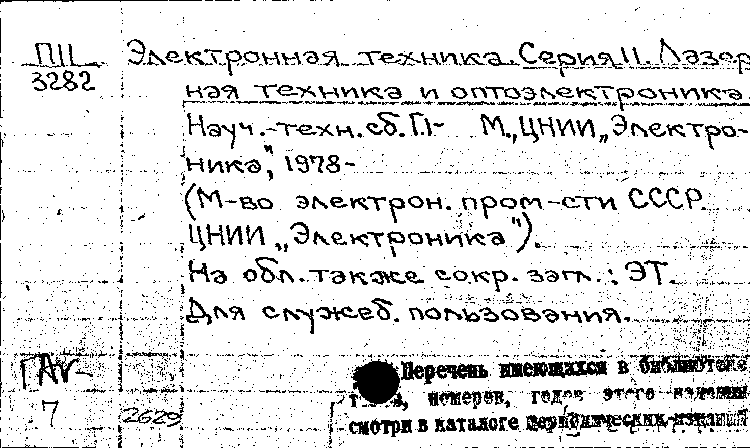 П11 Электронная техника. Серия 11. Лазер
3282 ная техника и оптоэлектроника.
Науч.-техн. сб. Г.1- М., ЦНИИ „Электро-
ника", 1978-
(М-во электрон. пром-сти СССР.
ЦНИИ „Электроника").
На обл. также сокр. загл.: ЭТ.
Для служеб. пользования.
Перечень имеющихся в библиотеке
номеров, годов этого издания
смотри в каталоге периодических изданий
7 2629